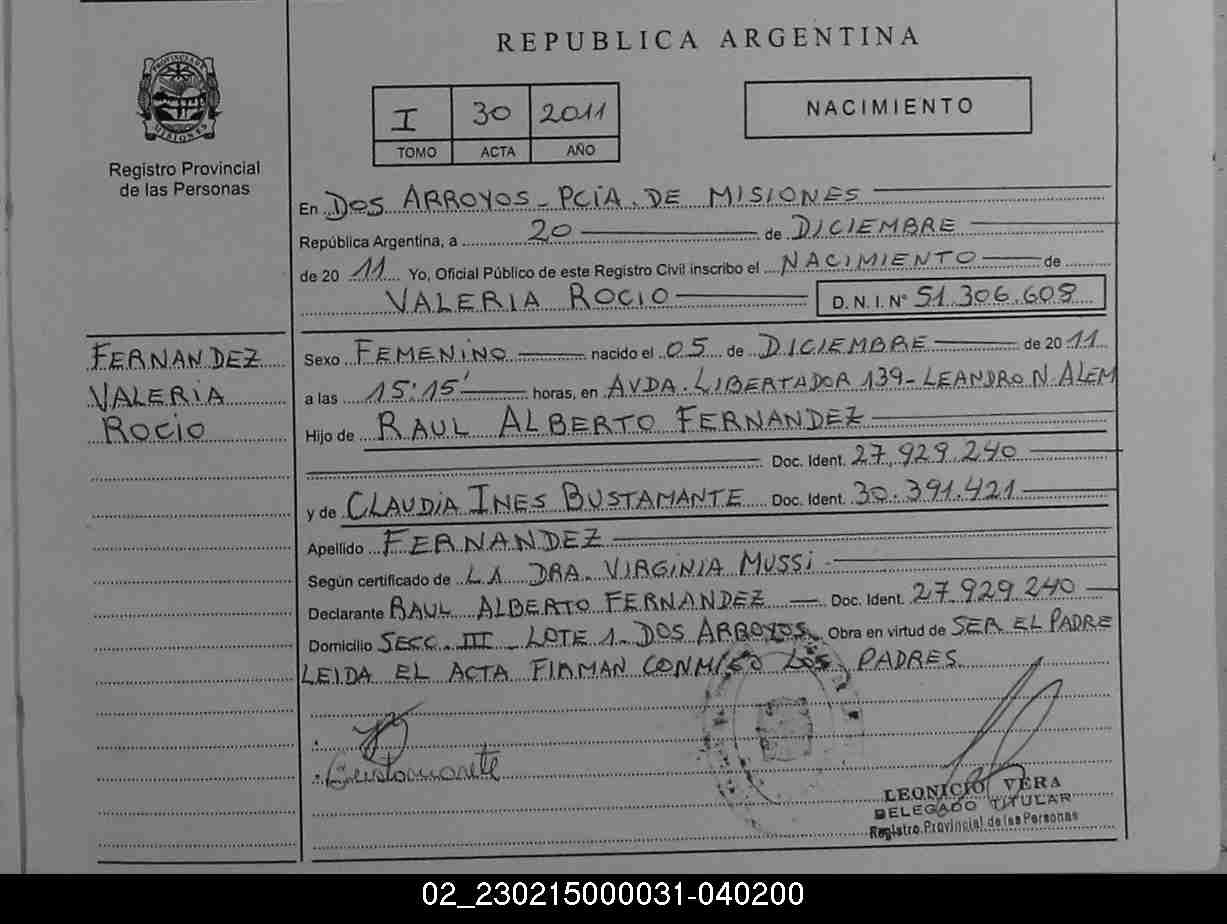 REPUBLICA ARGENTINA
PROVINCIA DE
MISIONES
Registro Provincial
de las Personas
I 30 2011
TOMO ACTA AÑO
NACIMIENTO
En DOS ARROYOS - PCIA. DE MISIONES
República Argentina, a 20 de DICIEMBRE
de 20 11 Yo, Oficial Público de este Registro Civil inscribo el NACIMIENTO de
VALERIA ROCIO D. N. I. N° 51.306.608
FERNANDEZ
VALERIA
ROCIO
Sexo FEMENINO nacido el 05 de DICIEMBRE de 20 11
a las 15:15' horas, en AVDA. LIBERTADOR 139 - LEANDRO N. ALEM
Hijo de RAUL ALBERTO FERNANDEZ
Doc. Ident. 27.929.240
y de CLAUDIA INES BUSTAMANTE Doc. Ident. 30.391.421
Apellido FERNANDEZ
Según certificado de LA DRA. VIRGINIA MUSSI -
Declarante RAUL ALBERTO FERNANDEZ Doc. Ident. 27.929.240
Domicilio SECC. III - LOTE 1 - DOS ARROYOS. Obra en virtud de SER EL PADRE
LEIDA EL ACTA FIRMAN CONMIGO LOS PADRES
LEONICIO VERA
DELEGADO TITULAR
Registro Provincial de las Personas
02_230215000031-040200